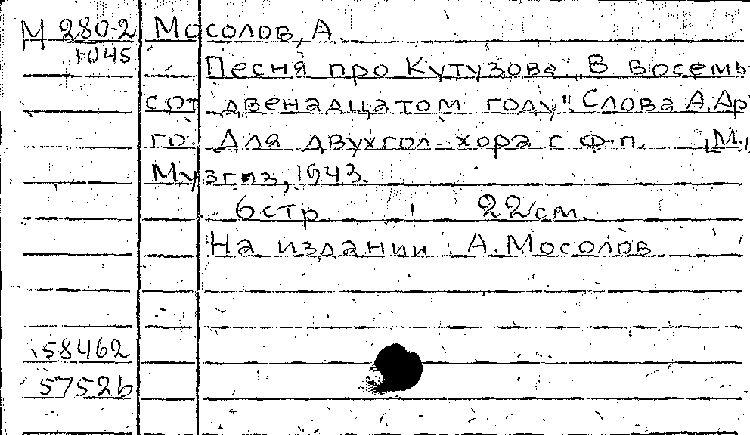 М 280-2 Мосолов, А
1045
Песня про Кутузова „В восемь
сот двенадцатом году". Слова А. Ар
го Для двухгол хора с ф-п. М.,
Музгиз, 1943.
6 стр 22 см
На издании : А. Мосолов
58462
57526